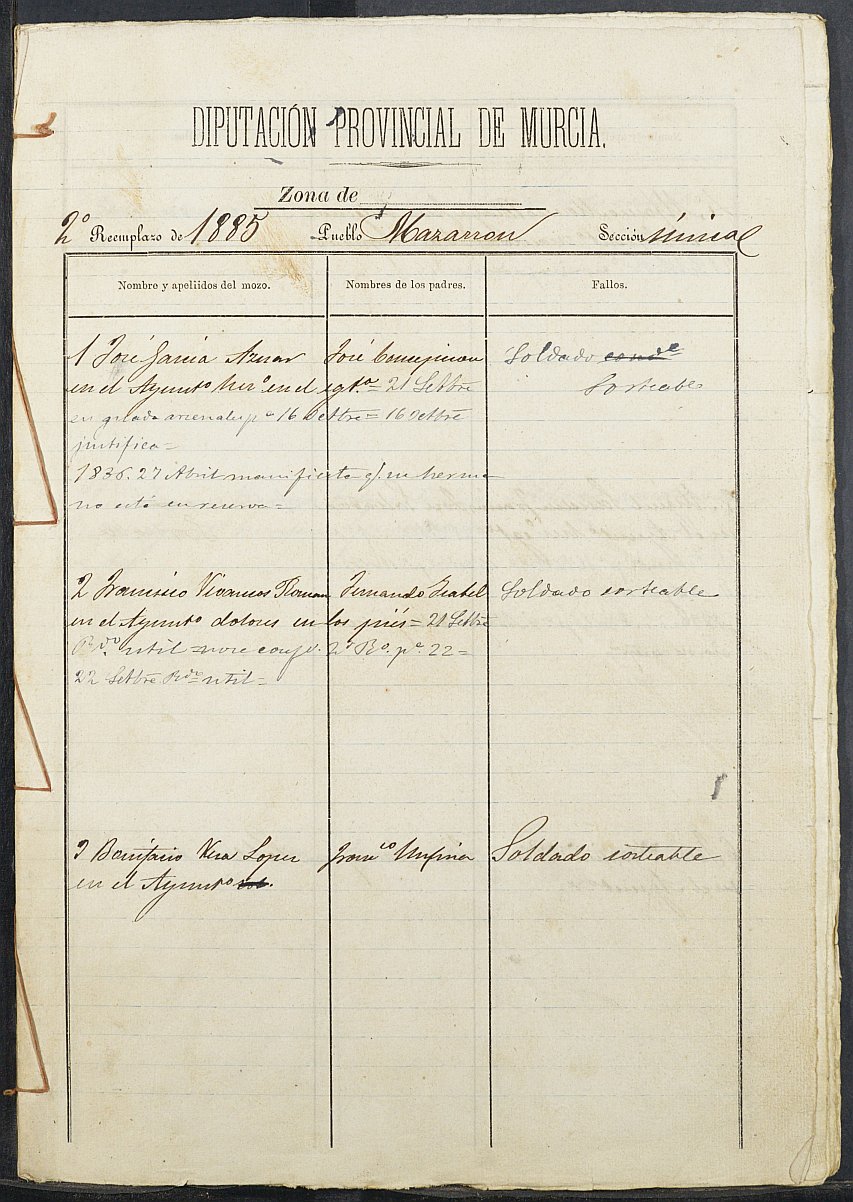 DIPUTACIÓN PROVINCIAL DE MURCIA.
Zona de
2º Reemplazo de 1885 Pueblo Mazarron Sección única
Nombre y apellidos del mozo. Nombres de los padres. Fallos.
1 José Garcia Aznar José Concepcion Soldado condl
en el Ayuntº herº en el egtº = 21 Setbre Sorteable
16 Octbre = 16 Octbre
justifica =
1836. 27 Abril manifiesta q. su herma
no está en reserva =
2 Francisco Vivancos Roman Fernando Isabel Soldado sorteable
en el Ayuntº dolores en los piés = 21 Setbre
Rdº util = 2º Rº. pª 22 =
22 Setbre Rdº util =
3 Bonifacio Vera Lopez Francº Rufina Soldado sorteable
en el Ayuntº